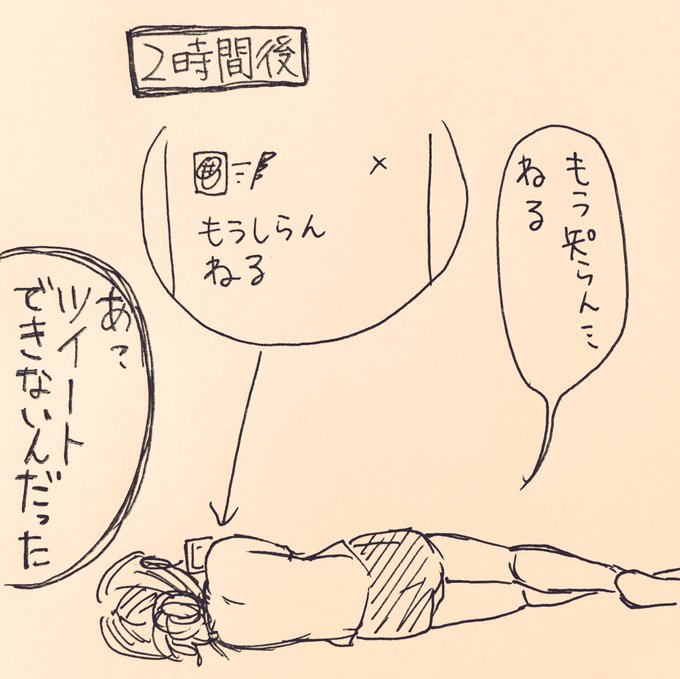 2時間後
もう知らん…
ねる
もうしらん
ねる
あっ
ツイート
できないんだった